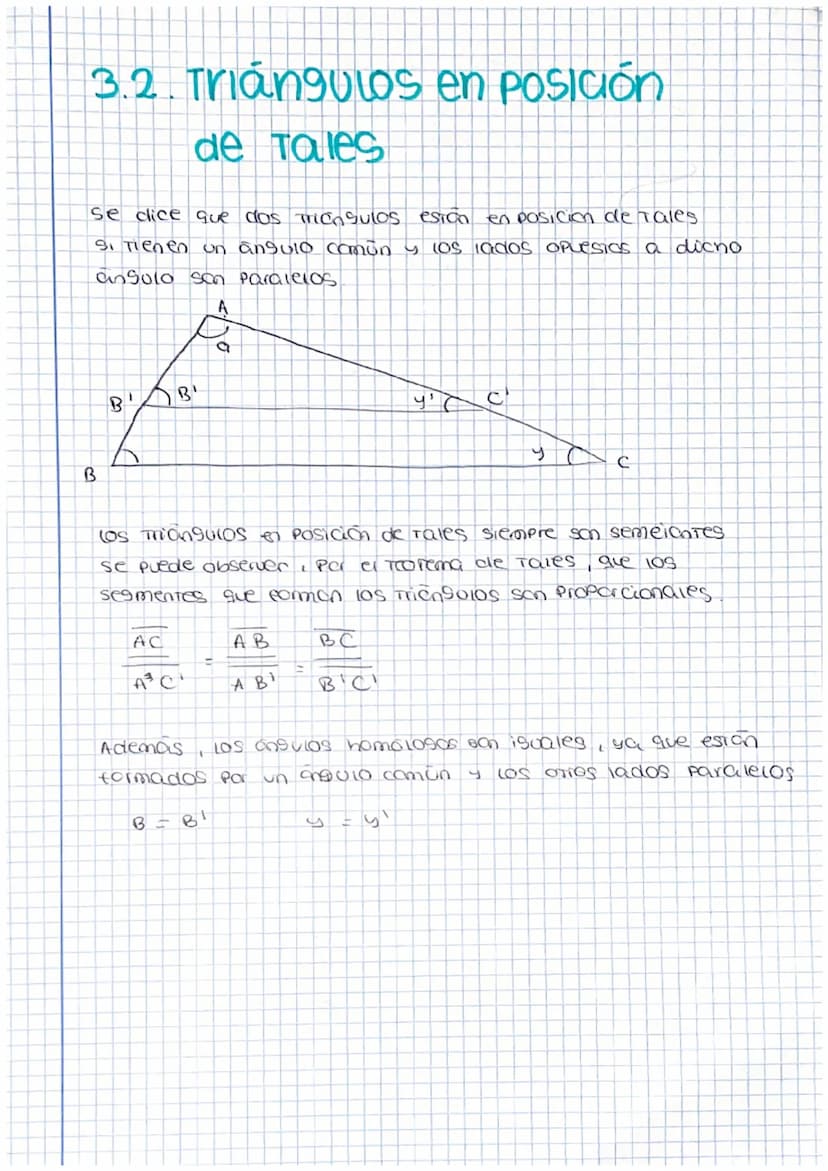 3.2. Triángulos en posición
de Tales
se dice que dos triángulos están en posición de Tales
si tienen un ángulo común y los lados opuestos a dicho
ángulo son paralelos.
A
a
B' B' y' C'
B y C
los triángulos en posición de Tales siempre son semejantes
se puede observar, por el Teorema de Tales, que los
segmentos que forman los triángulos son proporcionales.
AC / A'C' = AB / AB' = BC / B'C'
Además, los ángulos homólogos son iguales, ya que están
formados por un ángulo común y los otros lados paralelos
B = B' y = y'